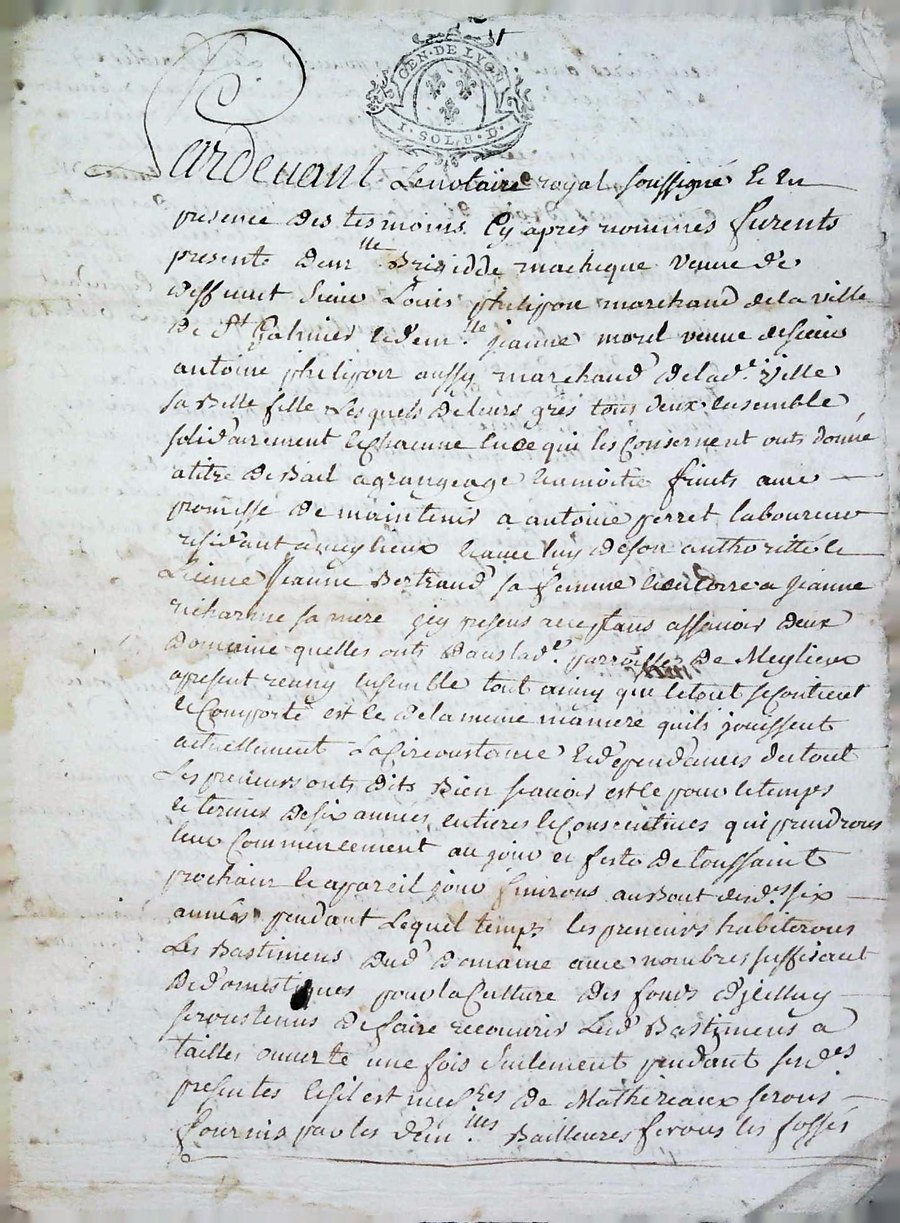 GEN. DE LYON
1. SOL. 8. D.
Pardevant Le notaire royal soussigné et En
presence des tesmoins Cy apres nommés furents
presente dem.lle Brigidde machique veuve de
deffunt sieur Louis philipon marchand de la ville
de St Galmier et dem.lle jeanne morel veuve de sieur
antoine philipon aussy marchand de lad.e ville
sa belle fille Lesquels de leurs grés tous deux Ensemble
solidairement et Chacune En ce qui les Consernent onts donné
a titre de Bail a grangeage a moitie fruits avec
promesse de maintenir a antoine perret laboureur
residant a meylieux et avec luy de son authorité et
Licence jeanne Bertrand sa femme et encorre a jeanne
sa mere jcy presens acceptans assavoir deux
Domaine quelles onts dans lad.e parroisse de Meylieux
apresent reuny Ensemble tout ainsy que le tout se Contient
et Comporte est et de la meme maniere quils jouissent
actuellement La Circonstance et dépendances du tout
Les preneurs onts dits Bien scavoir est ce pour le temps
et termes de six années entieres et Consecutives qui prendrons
leur Commencement au jour et feste de toussaint
prochain et a pareil jour finirons au bout desd.es six
années pendant Lequel temps les preneurs habiterons
Les Bastimens dud. Domaine avec nombres suffisant
De domestiques pour la Culture des fonds djcelluy
serons tenus de faire recouvrir Lesd. Bastimens a
tailles ouverte une fois seulement pendant sesd.es
presentes et sil est de Mathereaux serons
fournis par les dem.lles Bailleures ferons les fossés